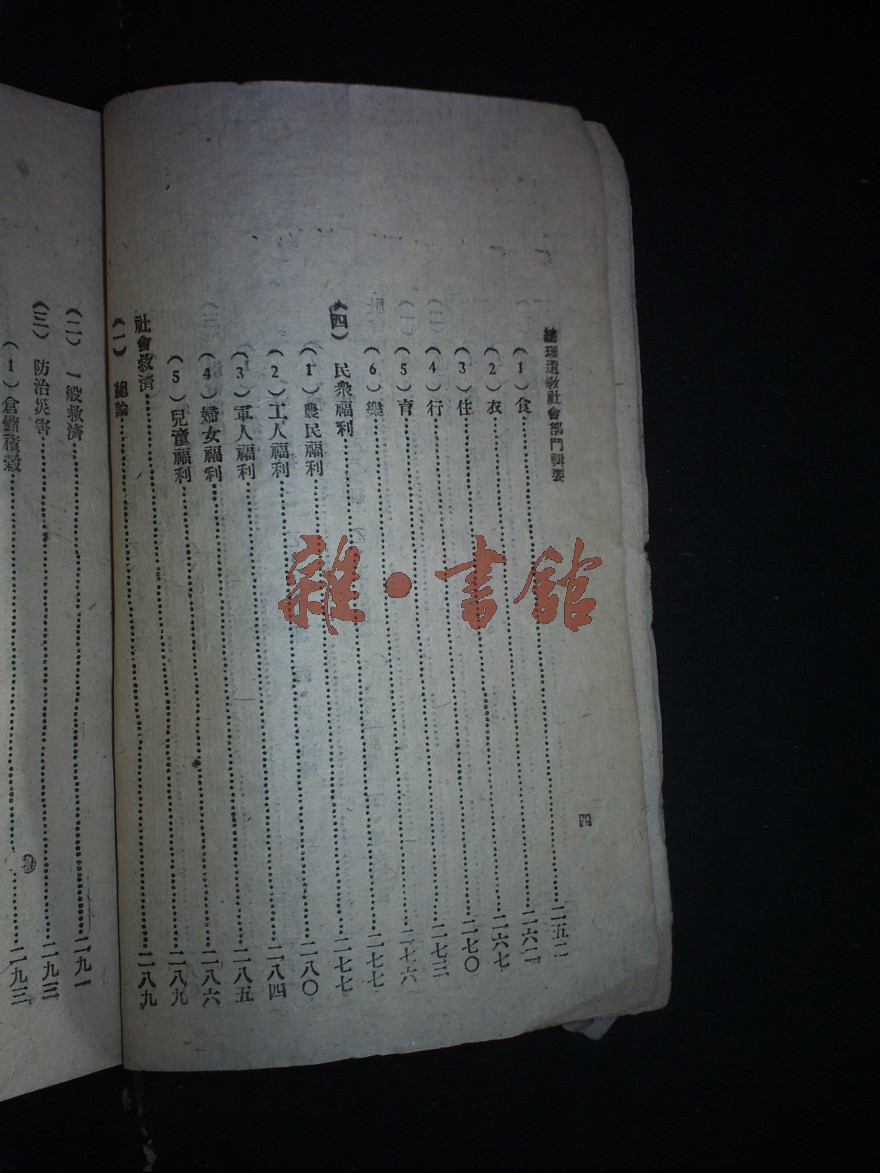 總理遺教社會部門輯要
四
(1)食……二五二
(2)衣……二六二
(3)住……二六七
(4)行……二七〇
(5)育……二七三
(6)樂……二七六
(四) 民衆福利……二七七
(1)農民福利……二七七
(2)工人福利……二八〇
(3)軍人福利……二八四
(4)婦女福利……二八五
(5)兒童福利……二八六
社會救濟……二八九
(一) 總論……二八九
(二) 一般救濟……二九一
(三) 防治災害……二九三
(1)倉儲積穀……二九三
雜·書館